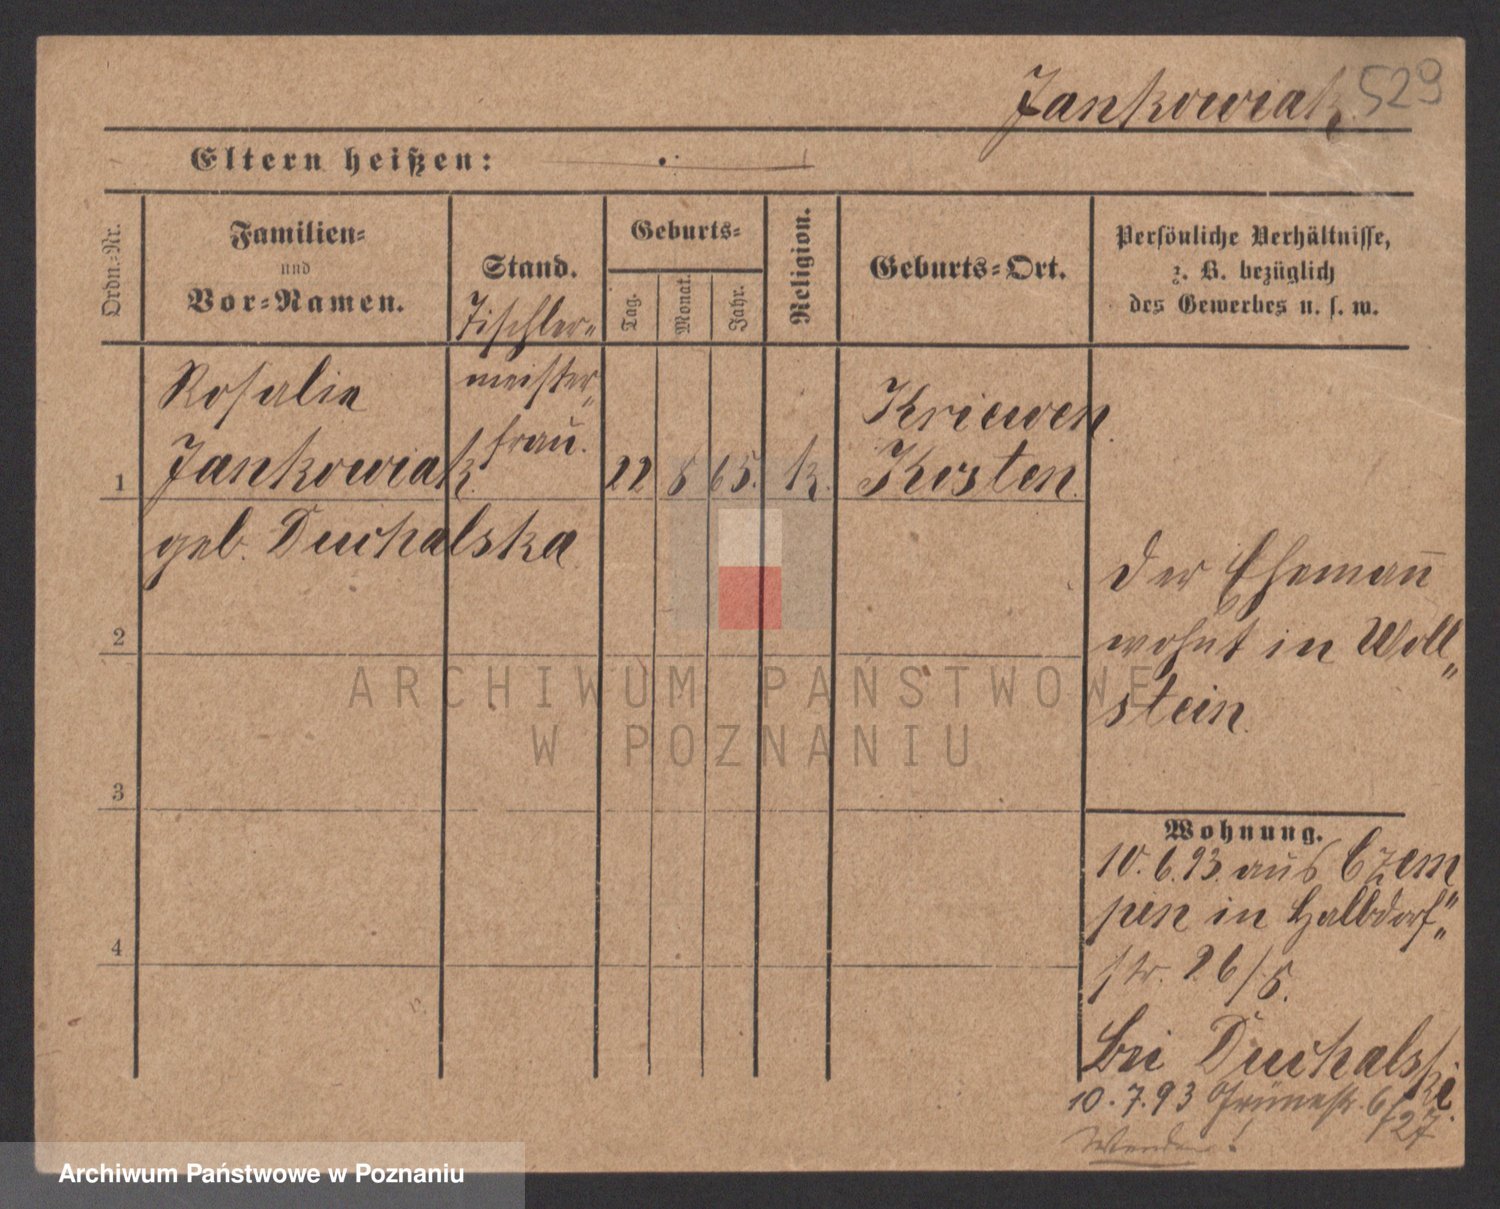 Jankowiak. 529
Eltern heißen:
Ordn.-Nr.
Familien-
und
Vor-Namen.
Stand.
Geburts-
Tag.
Monat.
Jahr.
Religion.
Geburts-Ort.
Persönliche Verhältnisse,
z. B. bezüglich
des Gewerbes u. s. w.
Tischler-
meister-
frau.
Rosalie
Jankowiak.
geb. Duchalska
1
22 8 65. k.
Kriewen
Kosten.
2
3
4
Der Ehemann
wohnt in Woll„
stein.
Wohnung.
10.6.93. aus Czem
pin in Halbdorf„
str. 26/8.
bei Duchalski.
10.7.93 Grünestr. 6/27
Wenden!
ARCHIWUM PAŃSTWOWE
W POZNANIU
Archiwum Państwowe w Poznaniu